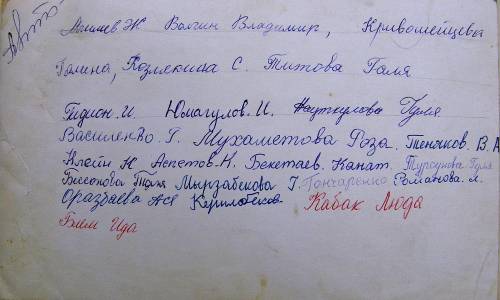 Волгин Владимир, Кривошейцева
Галина, Козлекина С. Титова Галя
Гидион.И. Юмагулов.И. Науткулова Гуля
Василенко. Г. Мухаметова Роза. Тенчиков. В.А
Клейн Н Аспетов.Н. Бекетаев. Канат. Турсунова Гуля
Бессонова Таня Мырзабекова Г. Гончаренко Романова. Л.
Оразбаева Ася Керимбеков Кабак Люда
Блем Ида